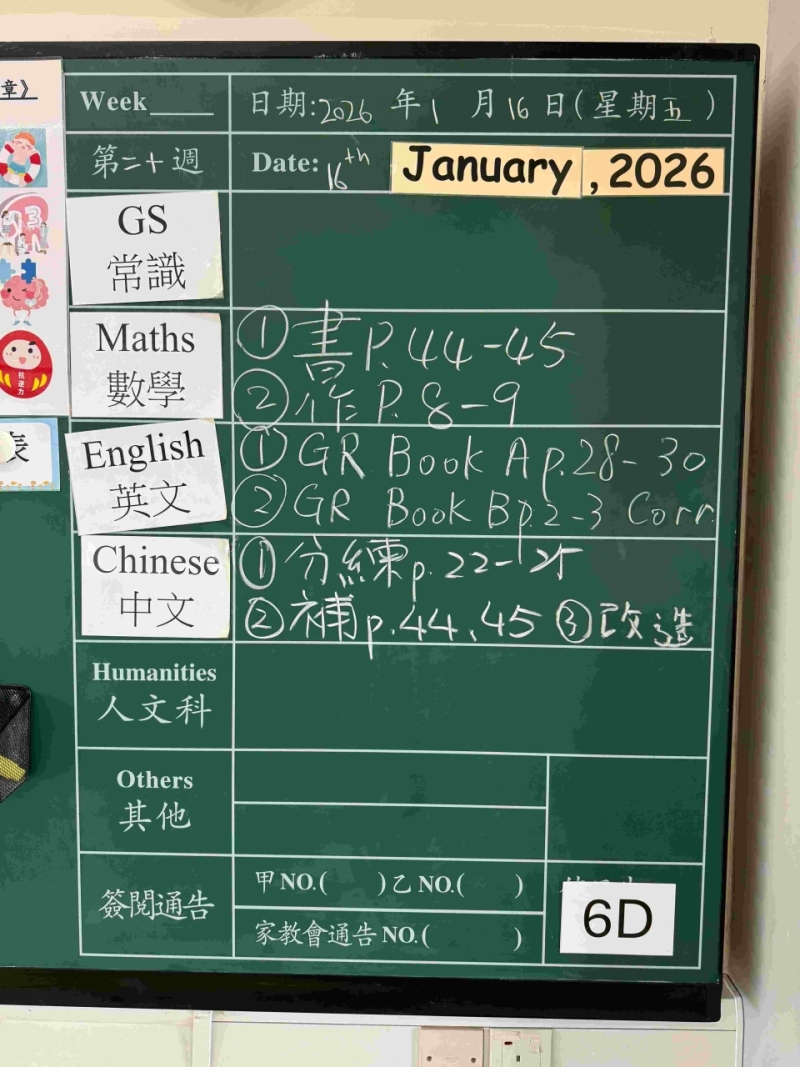 章》
Week
日期:2026 年 1 月 16 日(星期五)
第二十週
Date: 16th January, 2026
GS
常識
Maths
數學
① 書 P.44-45
② 作 P.8-9
English
英文
① GR Book A p.28-30
② GR Book B p.2-3 Corr.
Chinese
中文
① 分練 p.22-25
② 補 p.44、45 ③ 改造
表
Humanities
人文科
Others
其他
簽閱通告
甲 NO.( )乙 NO.( )
家教會通告 NO.( )
6D